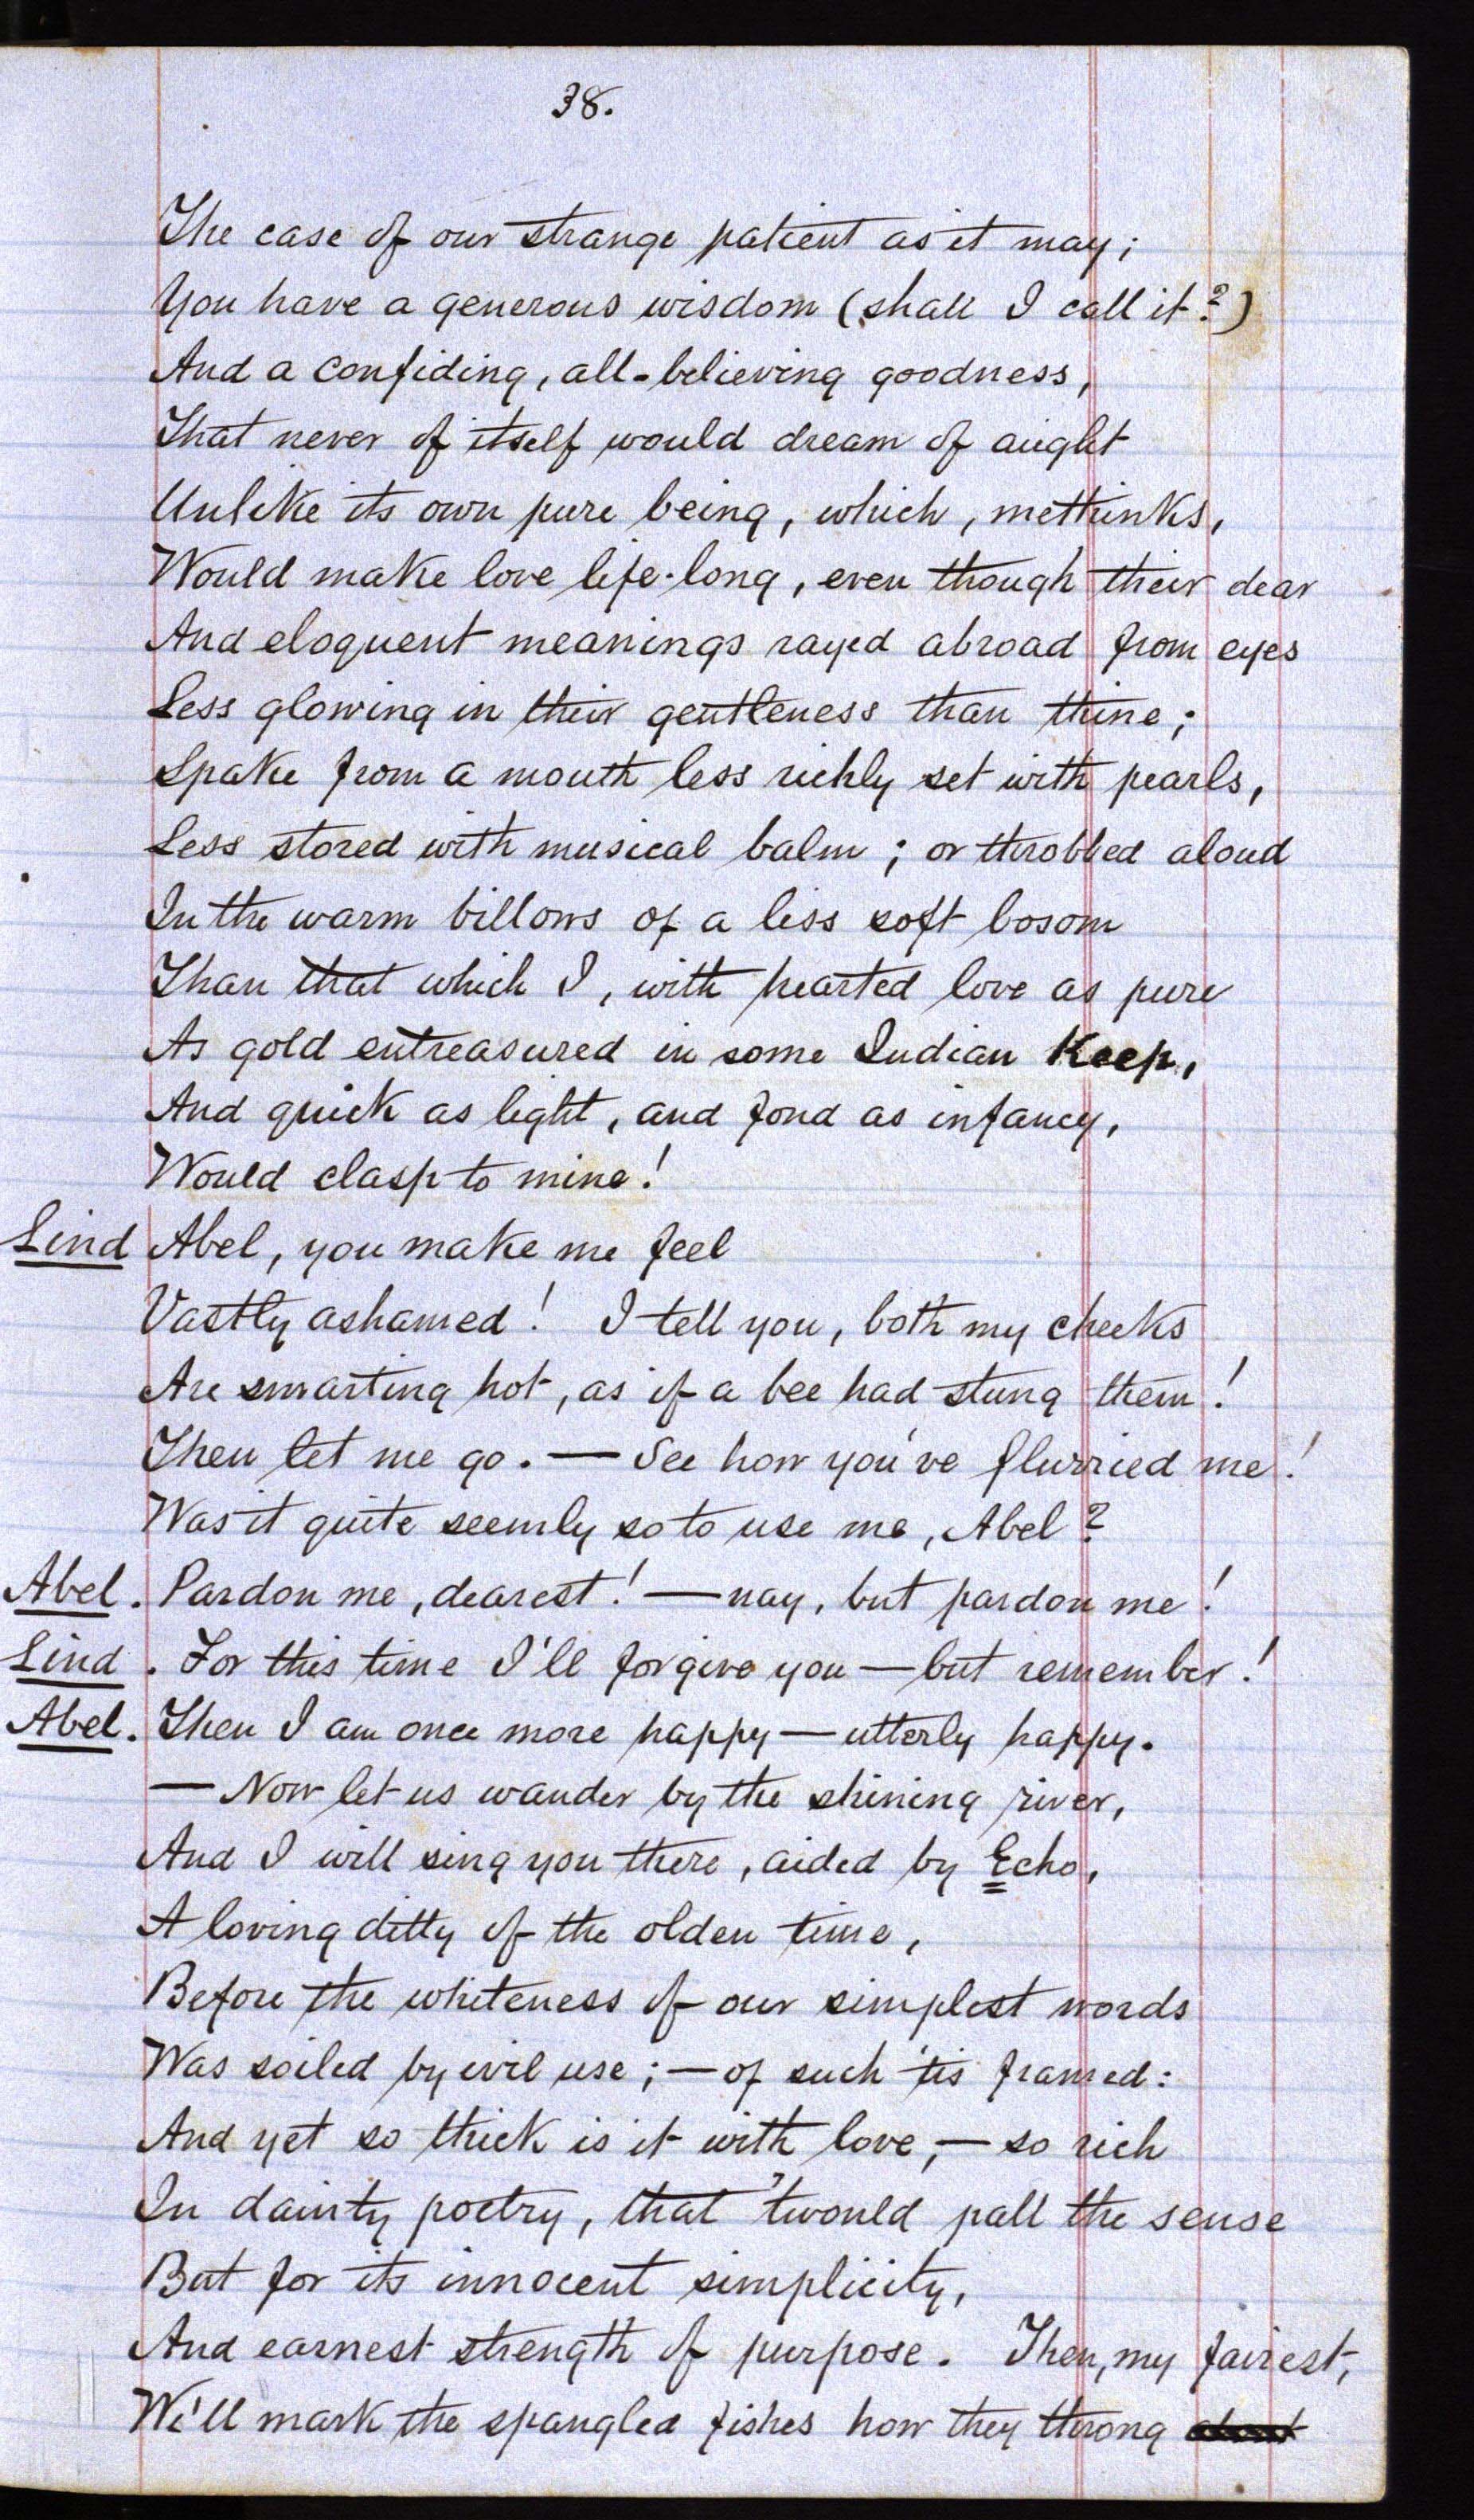 38.
The case of our strange patient as it may;
You have a generous wisdom (shall I call it?)
And a confiding, all-believing goodness,
That never of itself would dream of aught
Unlike its own pure being, which, methinks,
Would make love life-long, even though their dear
And eloquent meanings rayed abroad from eyes
Less glowing in their gentleness than thine;
Spake from a mouth less richly set with pearls,
Less stored with musical balm; or throbbed aloud
In the warm billows of a less soft bosom
Than that which I, with hearted love as pure
As gold entreasured in some Indian Keep,
And quick as light, and fond as infancy,
Would clasp to mine!
Lind Abel, you make me feel
Vastly ashamed! I tell you, both my cheeks
Are smarting hot, as if a bee had stung them!
Then let me go. — See how you've flurried me!
Was it quite seemly so to use me, Abel?
Abel. Pardon me, dearest! — nay, but pardon me!
Lind. For this time I'll forgive you — but remember!
Abel. Then I am once more happy — utterly happy.
— Now let us wander by the shining river,
And I will sing you there, aided by Echo,
A loving ditty of the olden time,
Before the whiteness of our simplest words
Was soiled by evil use; — of such 'tis framed:
And yet so thick is it with love, — so rich
In dainty poetry, that 'twould pall the sense
But for its innocent simplicity,
And earnest strength of purpose. Then, my fairest,
We'll mark the spangled fishes how they throng